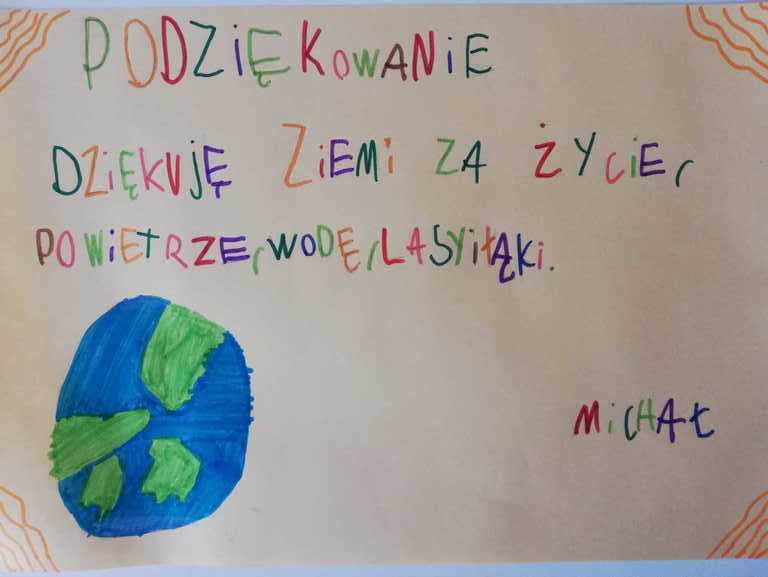 PODZIĘKOWANIE
DZiĘKUJĘ ZiEMi ZA ŻYCiE,
POWiETRZE, WODĘ, LASY i ŁĄKi.
MiCHAŁ